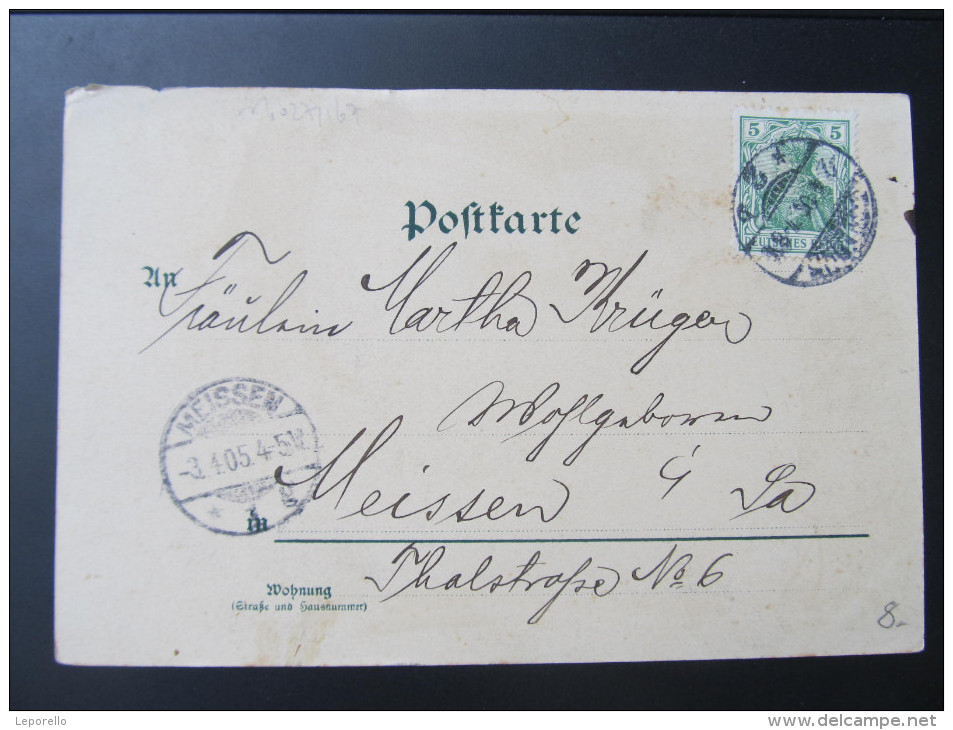 5 5
Postkarte
An
Fräulein Martha Krüger
Wohlgeboren
MEISSEN
-3.4.05.4-5N.
in Meissen i/ Sa
Thalstraße No 6
Wohnung
(Straße und Hausnummer)
8.-
Leporello
www.delcampe.net